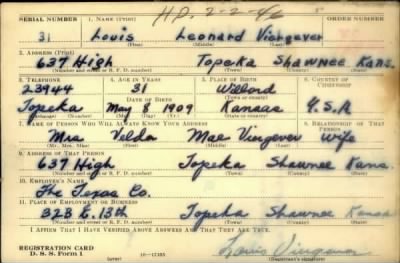 H.D. 2-2-46
SERIAL NUMBER 1. NAME (Print) ORDER NUMBER
31 Louis Leonard Viergever
(First) (Middle) (Last)
2. ADDRESS (Print)
637 High Topeka Shawnee Kans.
(Number and street or R. F. D. number) (Town) (County) (State)
3. TELEPHONE 4. AGE IN YEARS 5. PLACE OF BIRTH 6. COUNTRY OF CITIZENSHIP
23944 31 Willard
DATE OF BIRTH (Town or county)
Topeka May 8 1909 Kansas U.S.A
(Exchange) (Number) (Mo.) (Day) (Yr.) (State or country)
7. NAME OF PERSON WHO WILL ALWAYS KNOW YOUR ADDRESS 8. RELATIONSHIP OF THAT PERSON
Mrs Velda Mae Viergever Wife
(Mr., Mrs., Miss) (First) (Middle) (Last)
9. ADDRESS OF THAT PERSON
637 High Topeka Shawnee Kans
(Number and street or R. F. D. number) (Town) (County) (State)
10. EMPLOYER'S NAME
The Texas Co.
11. PLACE OF EMPLOYMENT OR BUSINESS
328 E. 13th Topeka Shawnee Kansas
(Number and street or R. F. D. number) (Town) (County) (State)
I AFFIRM THAT I HAVE VERIFIED ABOVE ANSWERS AND THAT THEY ARE TRUE.
REGISTRATION CARD
D. S. S. Form 1 (over) 16—17105 (Registrant's signature)
Louis Viergever